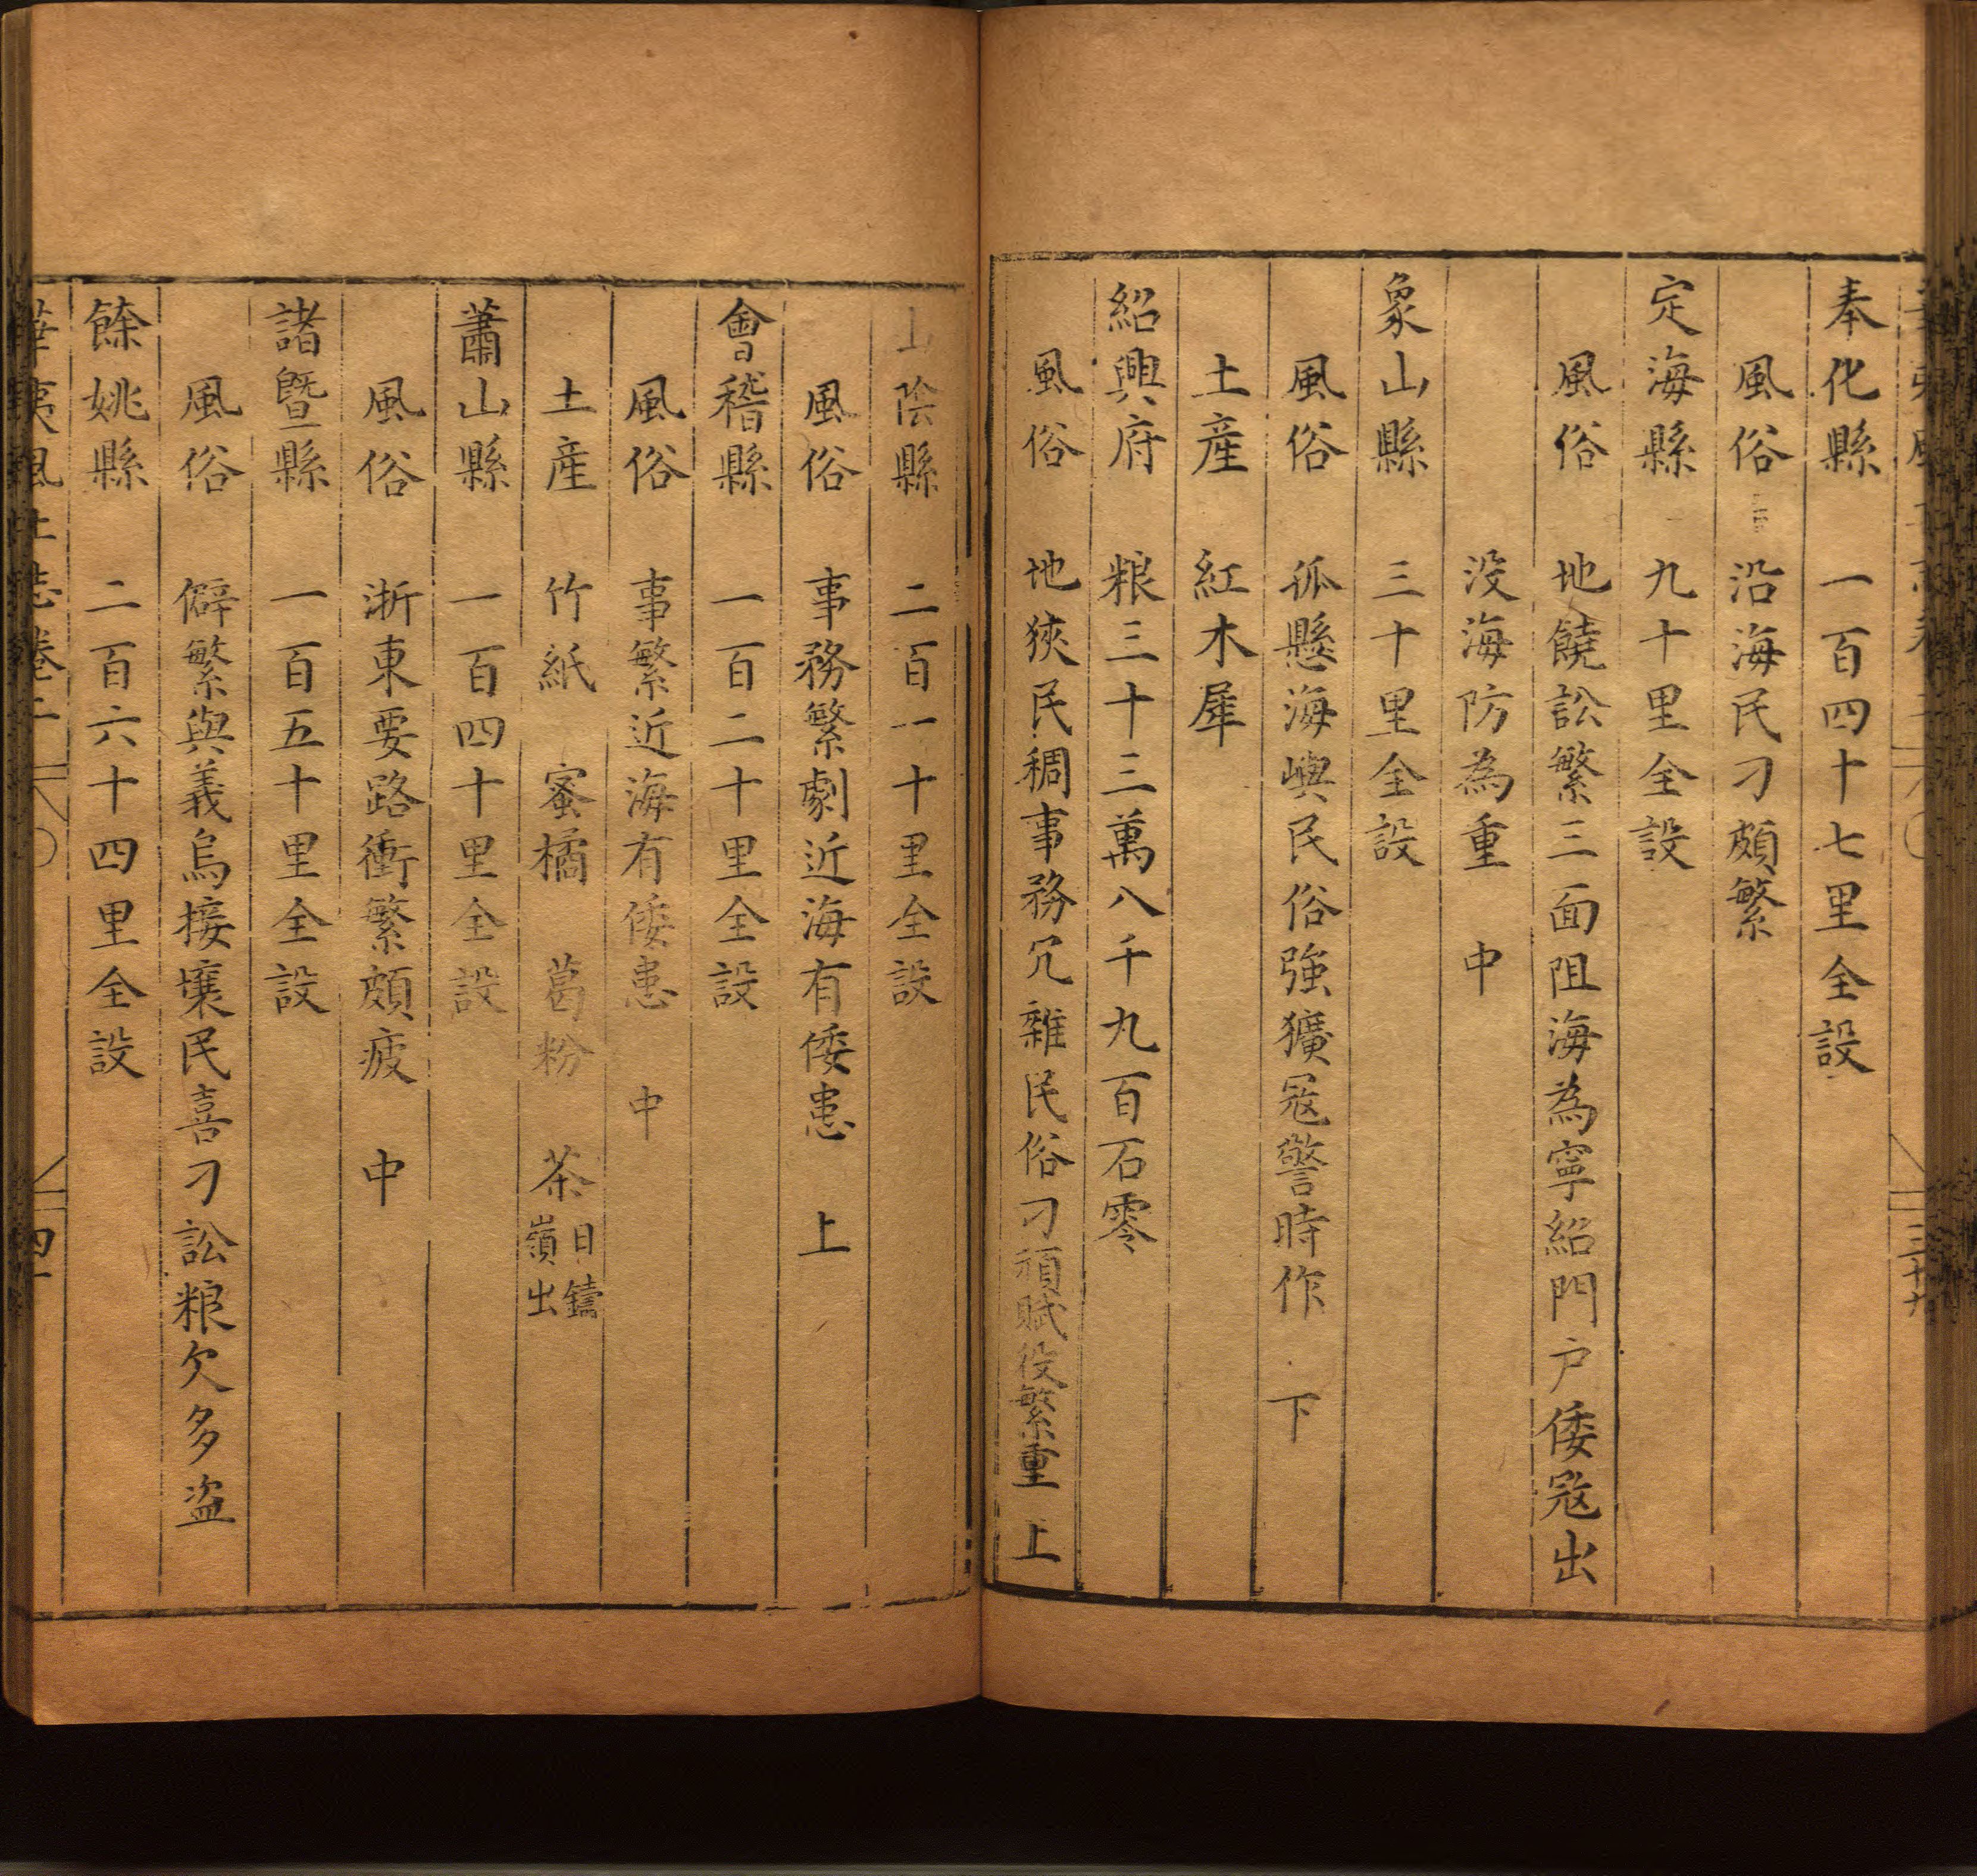 奉化縣 一百四十七里全設
風俗 沿海民刁頗繁
定海縣 九十里全設
風俗 地饒訟繁三面阻海為寧紹門户倭寇出
没海防為重 中
象山縣 三十里全設
風俗 孤懸海嶼民俗強獷寇警時作 下
土產 紅木犀
紹興府 粮三十三萬八千九百石零
風俗 地狹民稠事務冗雜民俗刁頑賦役繁重 上
山陰縣 二百一十里全設
風俗 事務繁劇近海有倭患 上
會稽縣 一百二十里全設
風俗 事繁近海有倭患 中
土產 竹紙 蜜橘 葛粉 茶日鑄嶺出
蕭山縣 一百四十里全設
風俗 浙東要路衝繁頗疲 中
諸暨縣 一百五十里全設
風俗 僻繁與義烏接壤民喜刁訟粮欠多盗
餘姚縣 二百六十四里全設
華夷風土志卷二